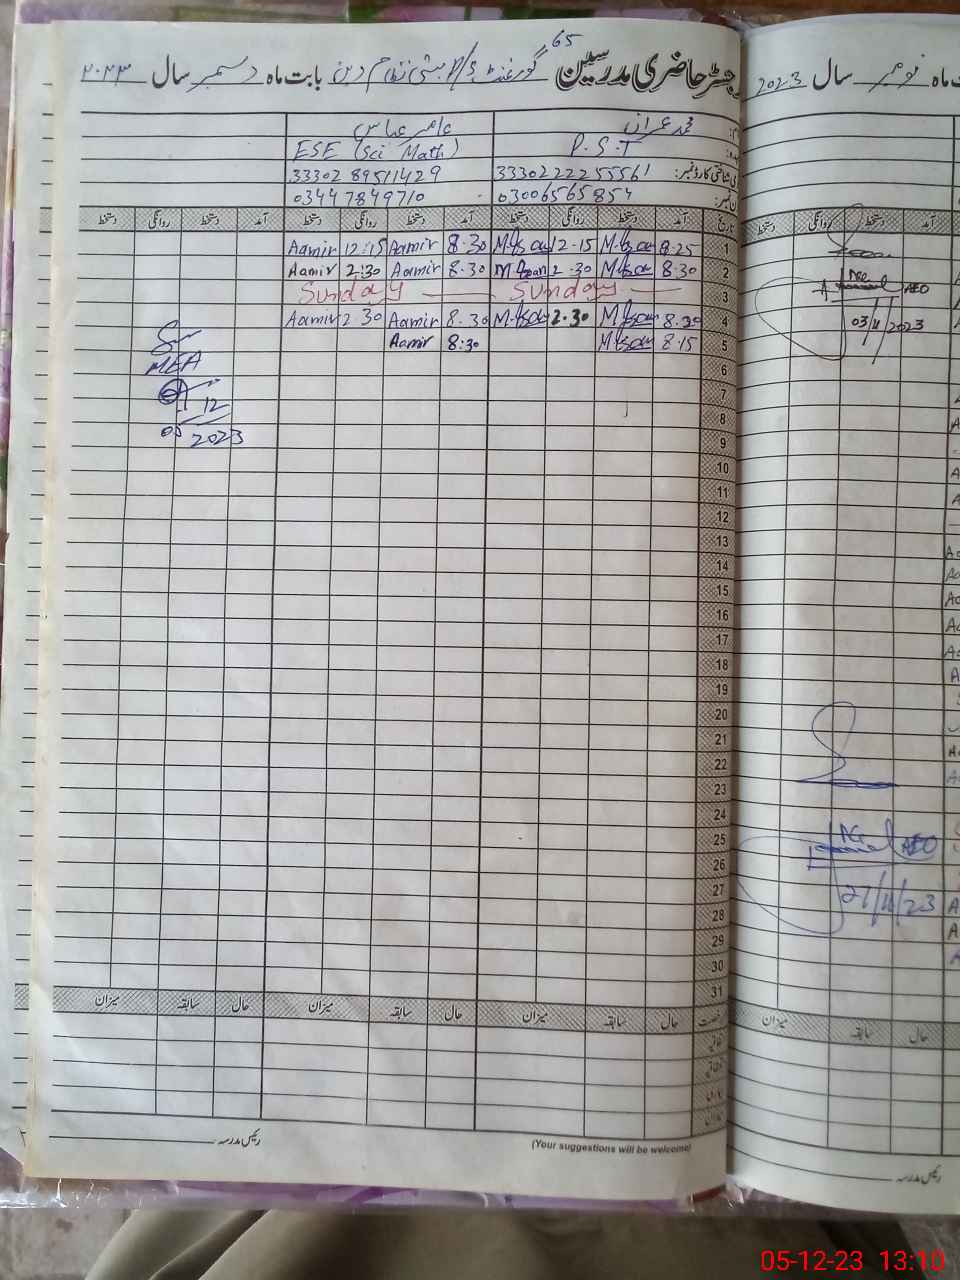 65
رجسٹر حاضری مدرسین گورنمنٹ بابت ماہ دسمبر سال ۲۰۲۳
محمد عمران عامر عباس
P.S.T ESE (Sci Math)
شناختی کارڈ نمبر: 3330222255561 33302 89511429
03006565854 03447849710
تاریخ آمد دستخط روانگی دستخط آمد دستخط روانگی دستخط آمد دستخط روانگی دستخط
1 8.25 12-15 8.30 Aamir 12:15 Aamir
2 8.30 2.30 8.30 Aamir 2:30 Aamir
3 Sunday Sunday
4 8.30 2.30 8.30 Aamir 2.30 Aamir
5 8.15 8:30 Aamir
6
7
8
9
10
11
12
13
14
15
16
17
18
19
20
21
22
23
24
25
26
27
28
29
30
31
MEA
12
2023
رخصت حال سابقہ میزان حال سابقہ میزان حال سابقہ میزان
اتفاقیہ
(Your suggestions will be welcome)
رئیس مدرسہ
ماہ نومبر سال 2023
آمد دستخط روانگی دستخط
AEO
03/11/2023
AEO
27/11/23
حال سابقہ میزان
رئیس مدرسہ
05-12-23 13:10